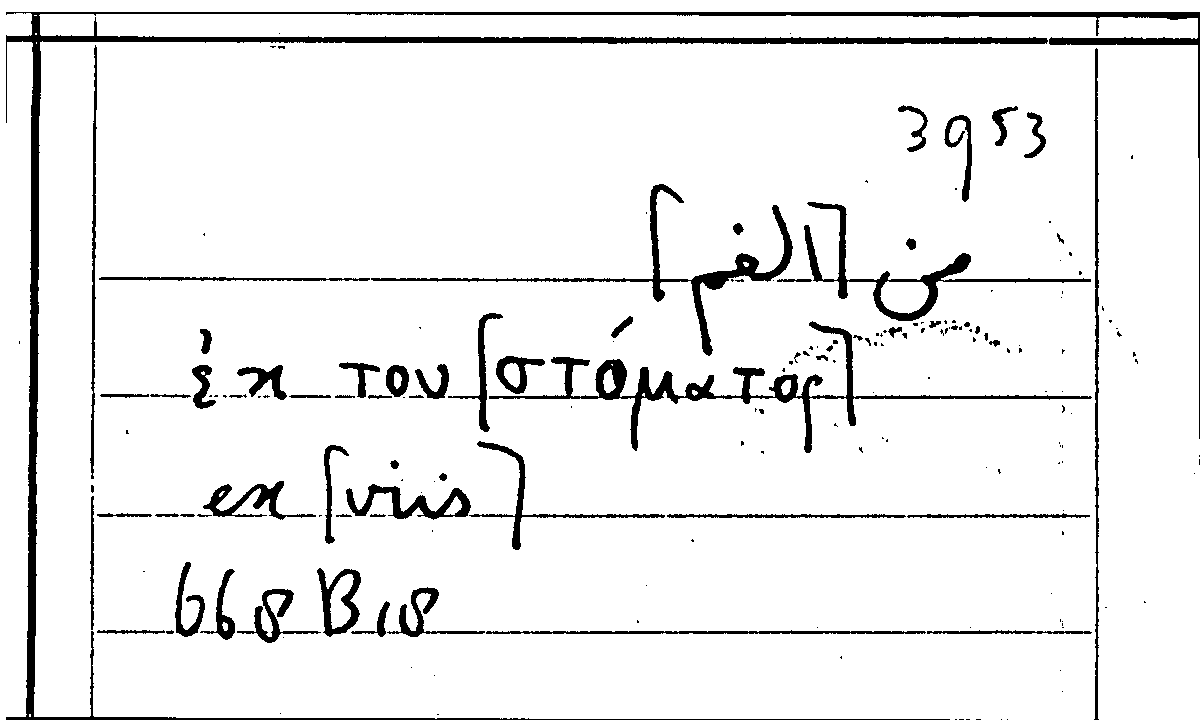 3953
من [الفم]
ἐκ του [στόματος]
ex [viis]
668 B 18